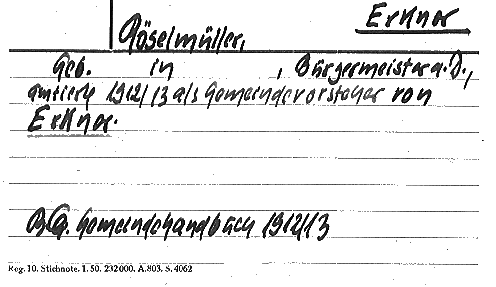 Erkner
Röselmüller,
Geb. in , Bürgermeister a.D.,
amtierte 1912/13 als Gemeindevorsteher von
Erkner.
Gemeindehandbuch 1912/13
Reg. 10. Stichnote. 1. 50. 232000. A. 803. S. 4062